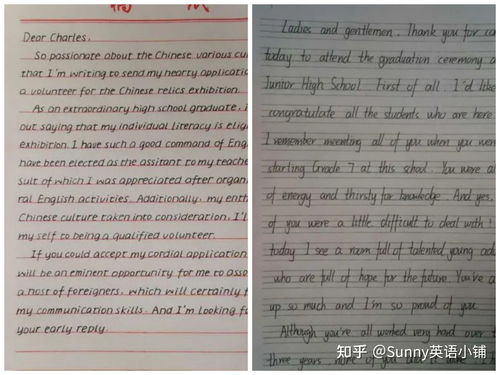 Dear Charles,
So passionate about the Chinese various cu
that I'm writing to send my hearty applicatio
a volunteer for the Chinese relics exhibition.
As an extraordinary high school graduate, i
out saying that my individual literacy is elig
exhibition. I have such a good command of Eng
have been elected as the assitant to my teache
sult of which I was appreciated after organ
ral English activities. Additionally, my enth
Chinese culture taken into consideration, I'l
my self to being a qualified volunteer.
If you could accept my cordial application
will be an eminent opportunity for me to asso
a host of foreigners, which will certainly f
my communication skills. And I'm looking fo
your early reply.
Ladies and gentlemen. Thank you for co
today to attend the graduation ceremony o
Junior High School. First of all. I'd like
congratulate all the students who are here
I remember meenting all of you when you wer
starting Grade 7 at this school. You were a
of energy and thirsty for knowledge. And yes,
of you were a little difficult to deal with!
today I see a room full of talented young adu
who are full of hope for the future. You've a
up so much and I'm so proud of you.
Although you're all worked very hard over
three years, none of you did it
知乎 @Sunny英语小铺